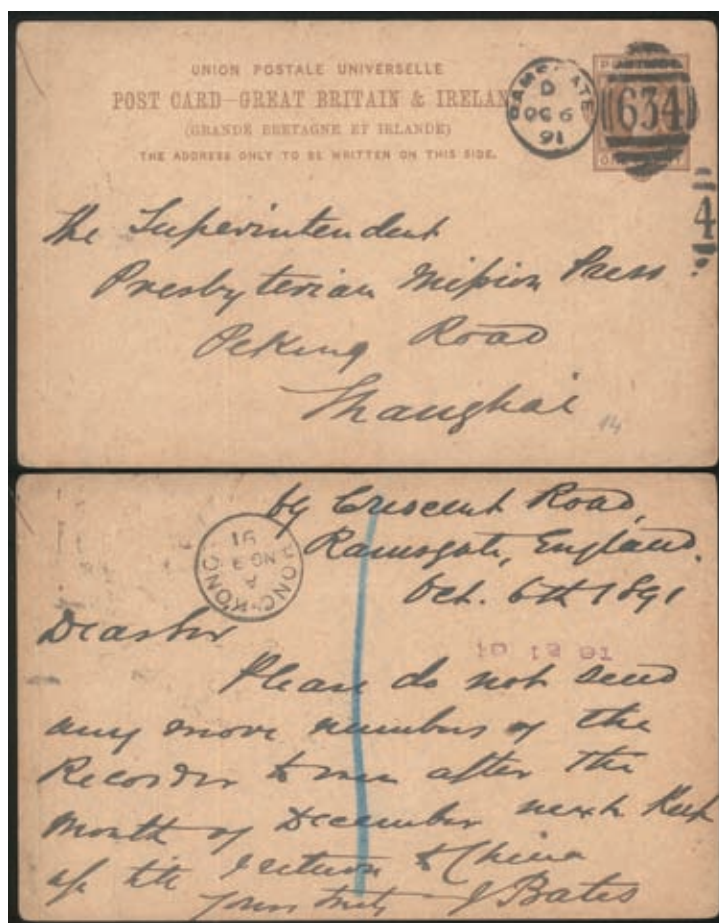 UNION POSTALE UNIVERSELLE
POST CARD—GREAT BRITAIN & IRELAN
(GRANDE BRETAGNE ET IRLANDE)
THE ADDRESS ONLY TO BE WRITTEN ON THIS SIDE.
RAMSGATE
D
OC 6
91
634
4
The Superintendent
Presbyterian Mission Press
Peking Road
Shanghai
14
Crescent Road,
Ramsgate, England.
Oct. 6th 1891
HONG-KONG
A
NO 9
91
Dear Sir
Please do not send
any more numbers of the
Recorder to me after the
month of December next Keep
up till I return to China
Yours truly J Bates